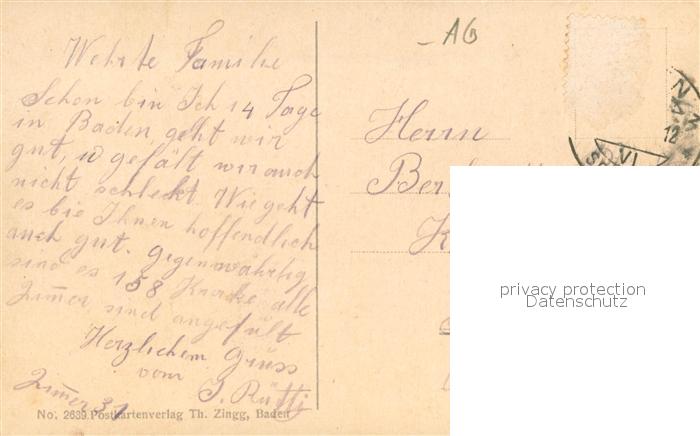 Wehrte Familie
Schon bin Ich 14 Tage
in Baden, geht wir
gut, gefält wir auch
nicht schlecht. Wie geht
es bie Ihnen hoffendlich
auch gut. gegenwährtig
sind es 158 Kranke, alle
Zimmer sind angefült
Herzlichem Gruss
vom J. Rütti
Zimmer 31
No. 2639. Postkartenverlag Th. Zingg, Baden
AG
Herrn
VI
12
privacy protection
Datenschutz